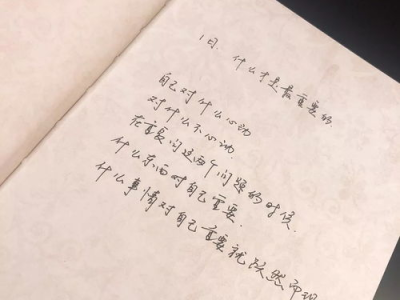 1日、什么才是最重要的
自己对什么心动
对什么不心动
在重复问这两个问题的时候.
什么东西对自己重要.
什么事情对自己重要就跃然而现